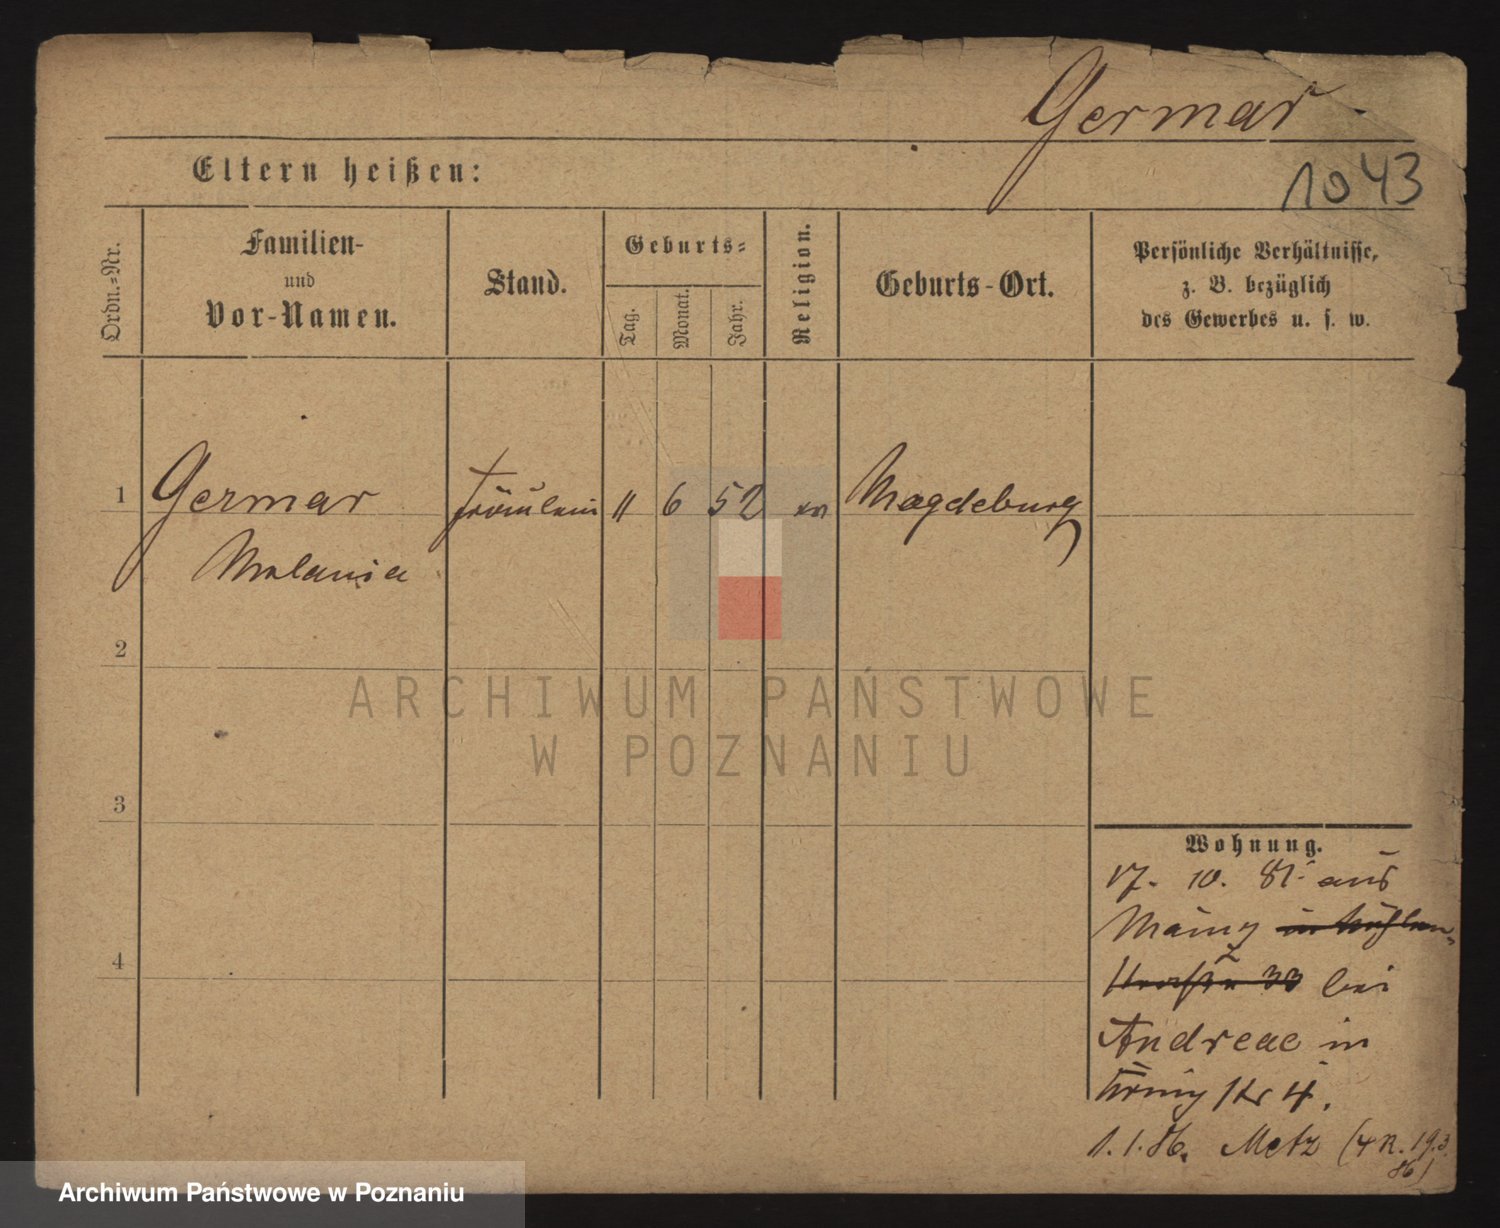 Germar
1043
Eltern heißen:
Ordn.-Nr.
Familien-
und
Vor-Namen.
Stand.
Geburts-
Tag.
Monat.
Jahr.
Religion.
Geburts-Ort.
Persönliche Verhältnisse,
z. B. bezüglich
des Gewerbes u. s. w.
1 Germar Fräulein 11 6 52 ev Magdeburg
Melania
2
3
4
ARCHIWUM PAŃSTWOWE
W POZNANIU
Wohnung.
17. 10. 81. aus
Mainz in Mühlen-
straße 33 bei
Andreae in
König str 4.
1. 1. 86. Metz (4 R. 19.3.
86)
Archiwum Państwowe w Poznaniu